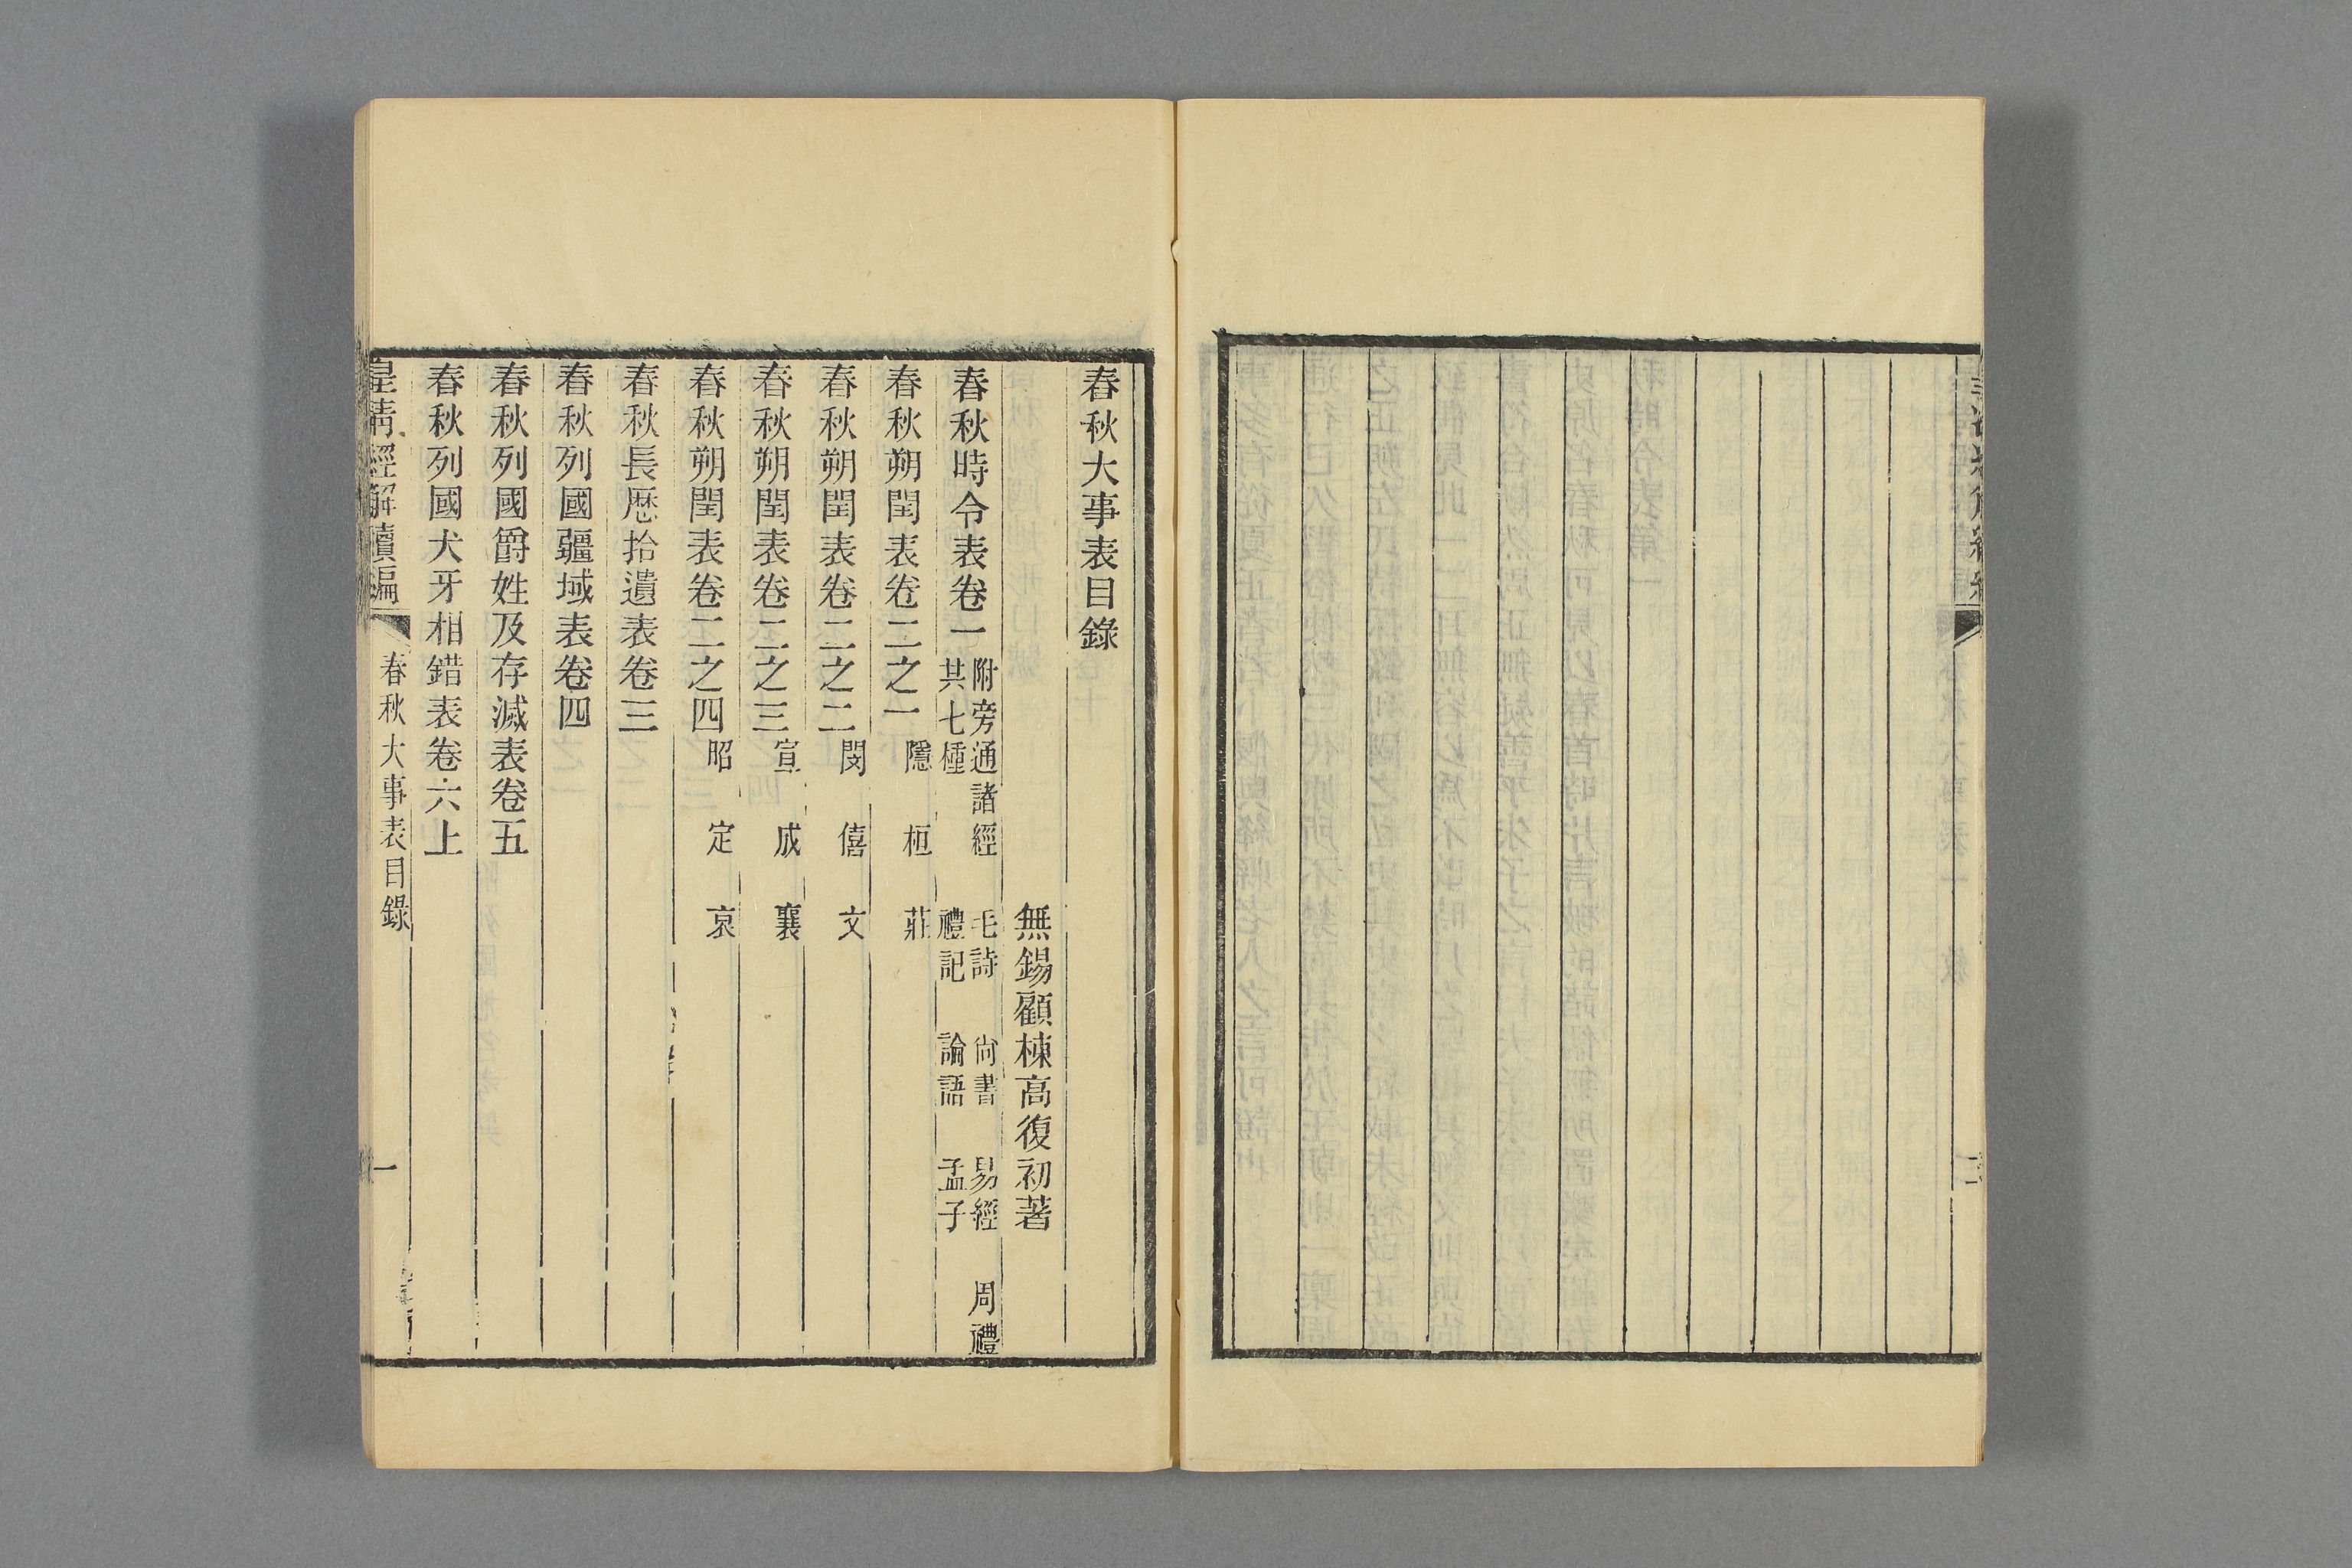 春秋大事表目錄
無錫顧棟高復初著
春秋時令表卷一 附旁通諸經 毛詩 尚書 易經 周禮
其七種 禮記 論語 孟子
春秋朔閏表卷二之一 隱 桓 莊
春秋朔閏表卷二之二 閔 僖 文
春秋朔閏表卷二之三 宣 成 襄
春秋朔閏表卷二之四 昭 定 哀
春秋長歷拾遺表卷三
春秋列國疆域表卷四
春秋列國爵姓及存滅表卷五
春秋列國犬牙相錯表卷六上
皇清經解續編 春秋大事表目錄 一